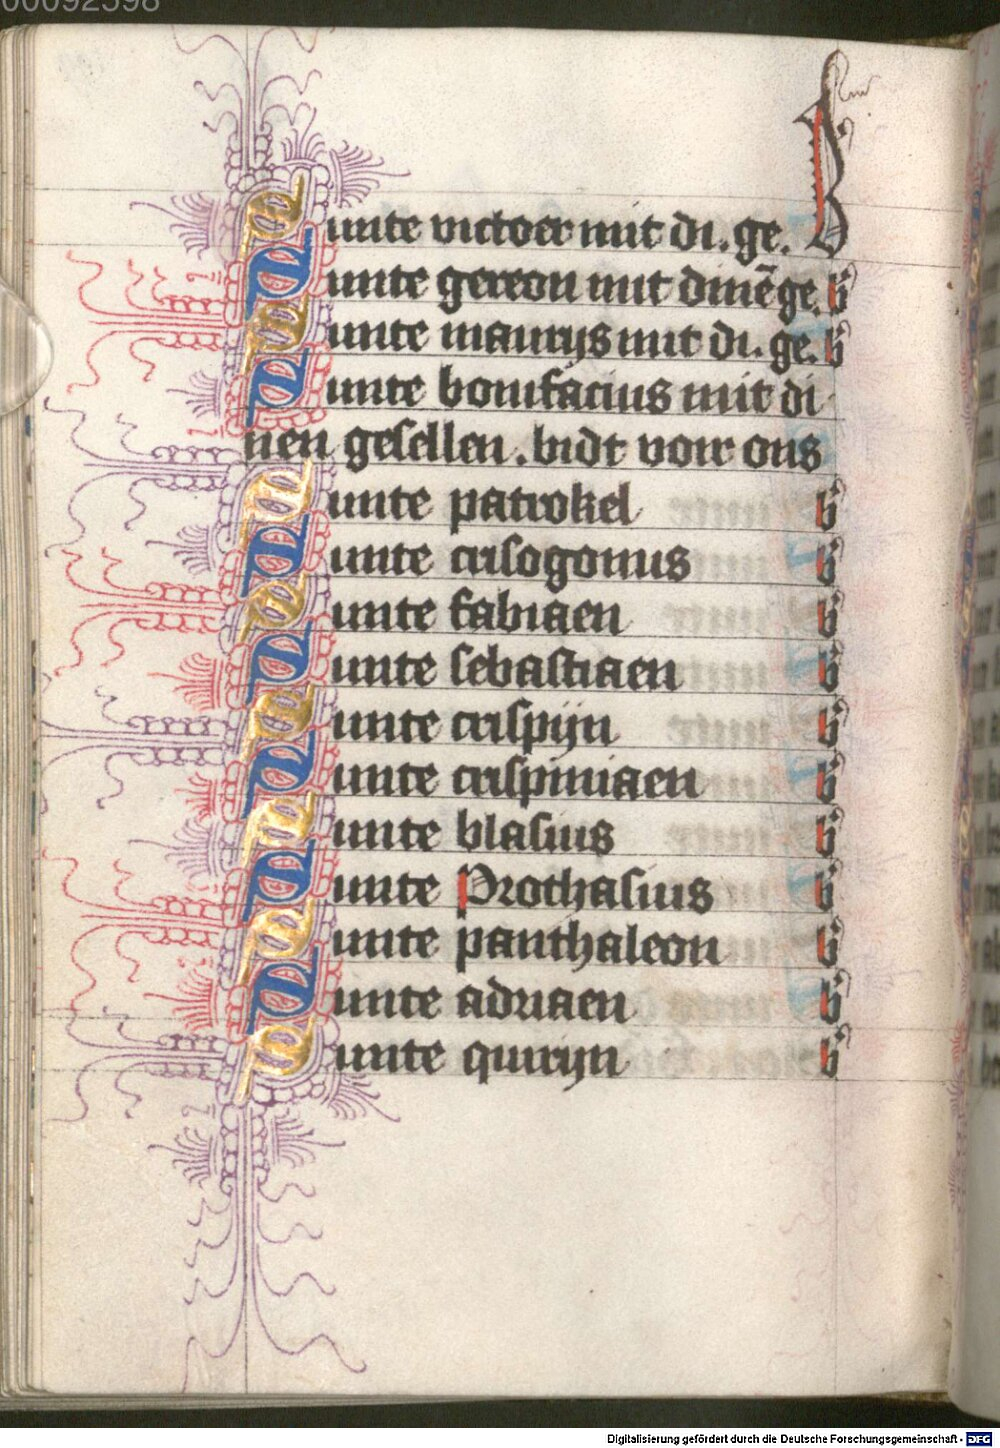 00092598
Sunte victoer mit di. ge. B
Sunte gereon mit dinē ge. b
Sunte maurijs mit di. ge. b
Sunte bonifacius mit di
nen gesellen. bidt voir ons
Sunte patrokel b
Sunte crisogonus b
Sunte fabiaen b
Sunte sebastiaen b
Sunte crispijn b
Sunte crispiniaen b
Sunte blasius b
Sunte Prothasius b
Sunte panthaleon b
Sunte adriaen b
Sunte quirijn b
Digitalisierung gefördert durch die Deutsche Forschungsgemeinschaft - DFG